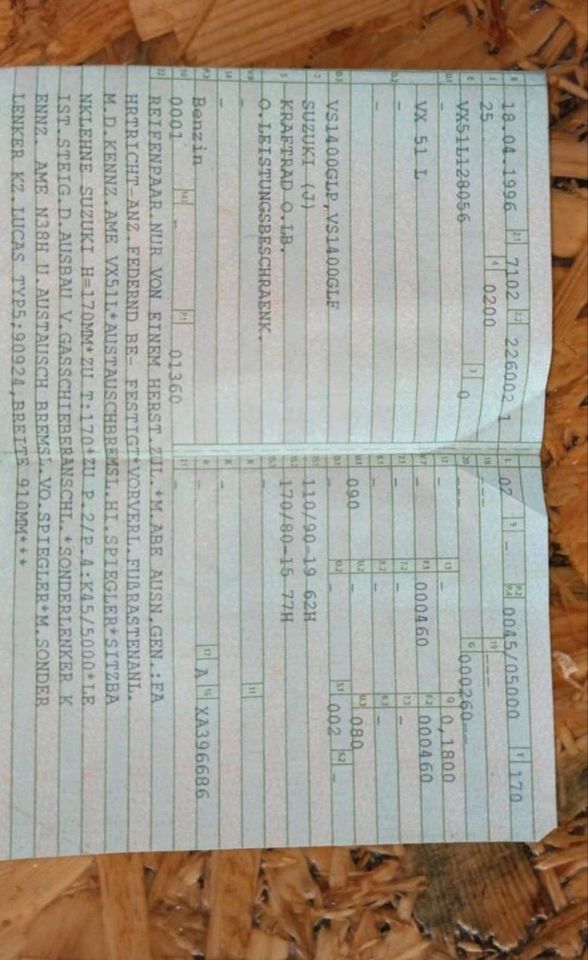 B 18.04.1996 2.1 7102 2.2 226002 1 L 02 9 – P.2 P.4 0045/05000 T 170
J 25 4 0200 18 --- 19 ---
E VX51L128056 3 0 20 --- G 000260--
D.1 – 12 – 13 – Q 0,1800
VX 51 L V.7 – F.1 000460 F.2 000460
D.2 – 7.1 – 7.2 – 7.3 –
– 8.1 – 8.2 – 8.3 –
U.1 090 U.2 – U.3 080
D.3 VS1400GLP,VS1400GLF O.1 – O.2 – S.1 002 S.2 –
2 SUZUKI (J) 15.1 110/90-19 62H
5 KRAFTRAD O.LB. 15.2 170/80-15 77H
O.LEISTUNGSBESCHRAENK. 15.3 –
V.9 – R – 11
14 – K –
P.3 Benzin 6 – 17 A 16 XA396686
10 0001 – P.1 01360 21 –
22 REIFENPAAR NUR VON EINEM HERST.ZUL.*M.ABE AUSN.GEN.:FA
HRTRICHT ANZ FEDERND BE- FESTIGT*VORVERL.FUßRASTENANL.
M.D.KENNZ.AME VX51L*AUSTAUSCHBREMSL.HI.SPIEGLER*SITZBA
NKLEHNE SUZUKI H=170MM*ZU T:170*ZU P.2/P.4:K45/5000*LE
IST.STEIG.D.AUSBAU V.GASSCHIEBERANSCHL.*SONDERLENKER K
ENNZ. AME N38H U.AUSTAUSCH BREMSL.VO.SPIEGLER*M.SONDER
LENKER KZ LUCAS TYP5;90924,BREITE 910MM***